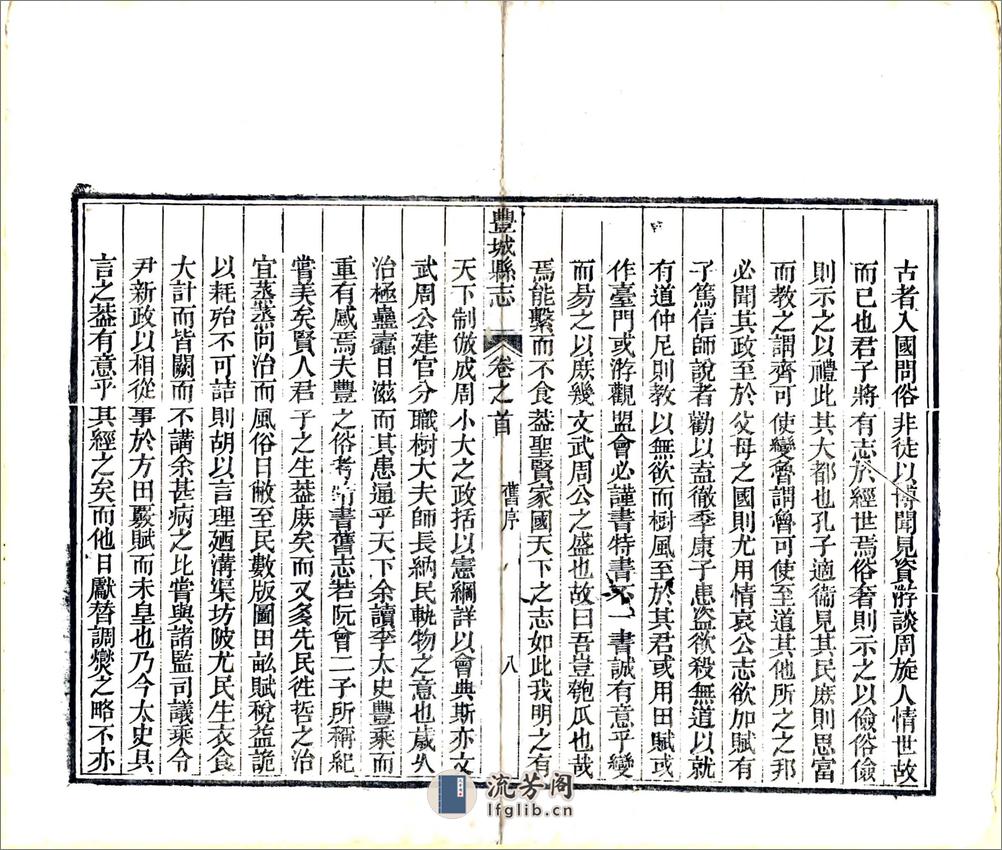 古者入國問俗非徒以博聞見資游談周旋人情世故
而已也君子將有志於經世焉俗奢則示之以儉俗儉
則示之以禮此其大都也孔子適衞見其民庶則思富
而教之謂齊可使變魯謂魯可使至道其他所之之邦
必聞其政至於父母之國則尤用情哀公志欲加賦有
子篤信師說者勸以盍徹季康子患盜欲殺無道以就
有道仲尼則教以無欲而樹風至於其君或用田賦或
作臺門或游觀盟會必謹書特書不一書誠有意乎變
而易之以庶幾文武周公之盛也故曰吾豈匏瓜也哉
焉能繫而不食葢聖賢家國天下之志如此我明之有
豐城縣志 卷之首 舊序 八
天下制倣成周小大之政括以憲綱詳以會典斯亦文
武周公建官分職樹大夫師長納民軌物之意也歲久
治極蠱蠹日滋而其患通乎天下余讀李太史豐乘而
重有感焉夫豐之俗考諸書舊志若阮曾二子所稱紀
嘗美矣賢人君子之生葢庶矣而又多先民徃哲之治
宜蒸蒸向治而風俗日敝至民數版圖田畝賦稅益詭
以耗殆不可詰則胡以言理廼溝渠坊陂尤民生衣食
大計而皆闕而不講余甚病之比嘗與諸監司議乘令
尹新政以相從事於方田覈賦而未皇也乃今太史具
言之葢有意乎其經之矣而他日獻替調爕之略不亦
流芳阁
lfglib.cn